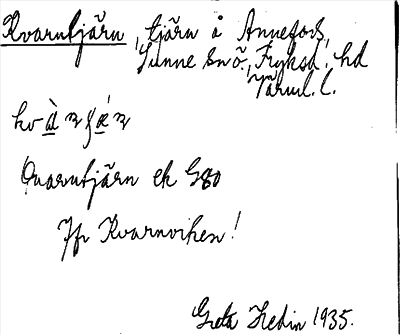 Kvarntjärn, tjärn å Annefors,
Sunne sn ö., Fryksd. hd
Värml. l.
Quarntjärn ek G80
Jfr Kvarnviken!
Greta Hedin 1935.